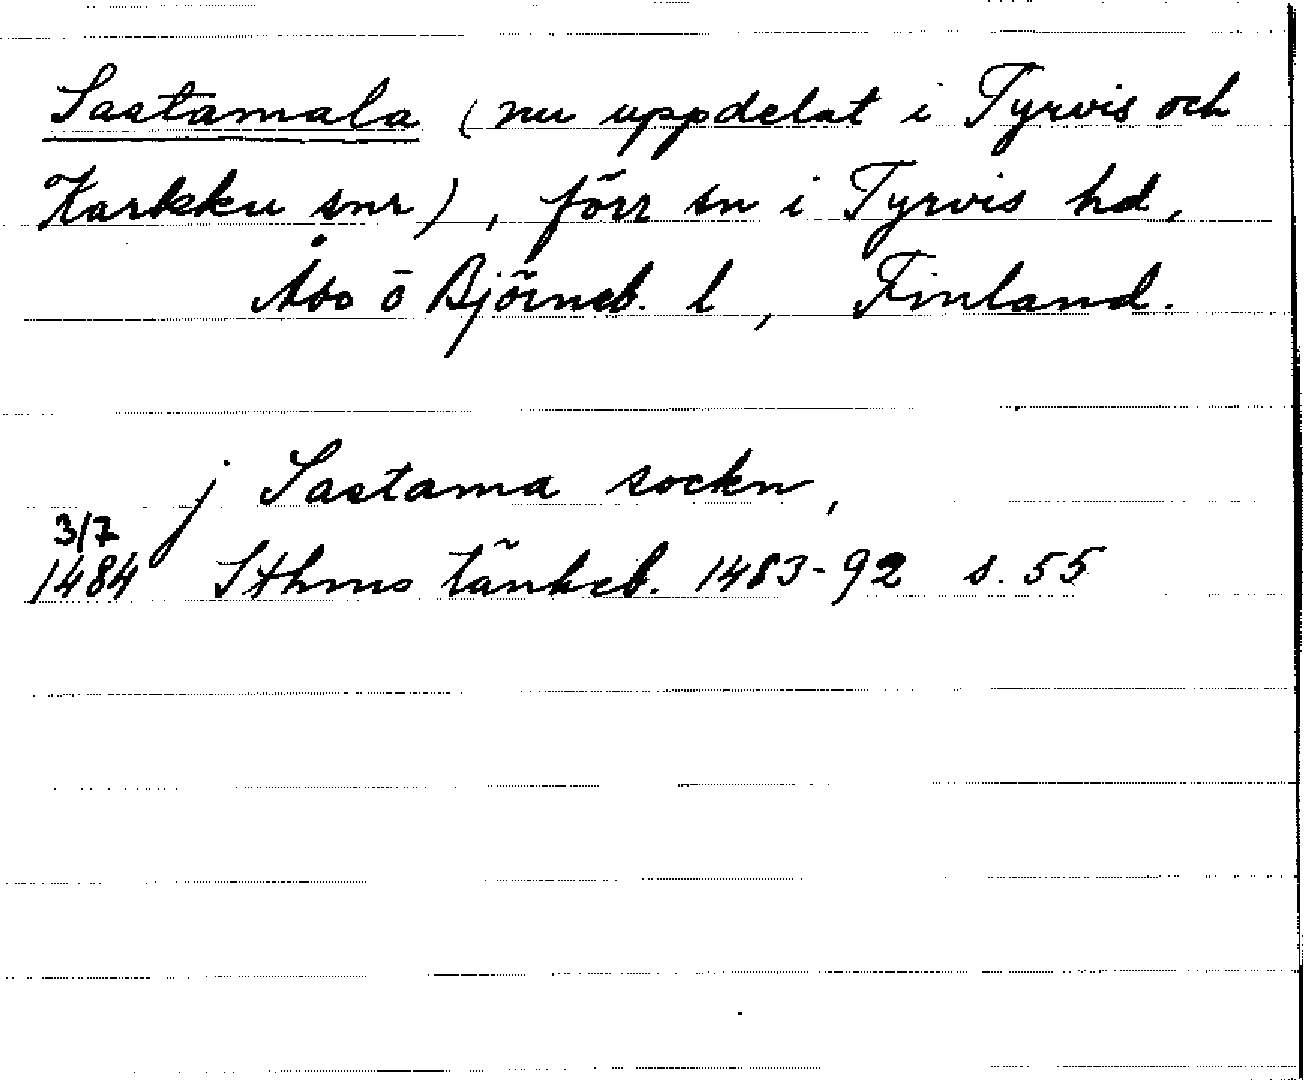 Sastamala (nu uppdelat i Tyrvis och
Karkku snr), förr sn i Tyrvis hd,
Åbo o Björneb. l, Finland.
j Sastama sockn,
3/7
1484 Sthms tänkeb. 1483-92 s. 55